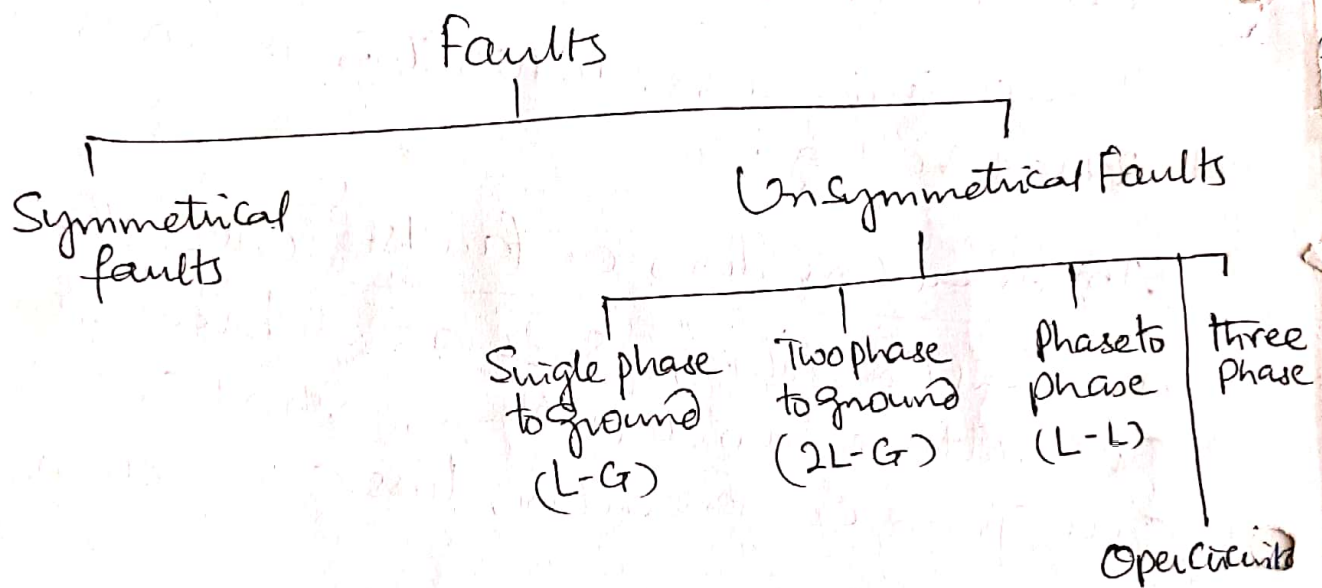 Faults
Symmetrical
faults
Unsymmetrical Faults
Single phase
to ground
(L-G)
Two phase
to ground
(2L-G)
Phase to
phase
(L-L)
three
Phase
Open Circuit